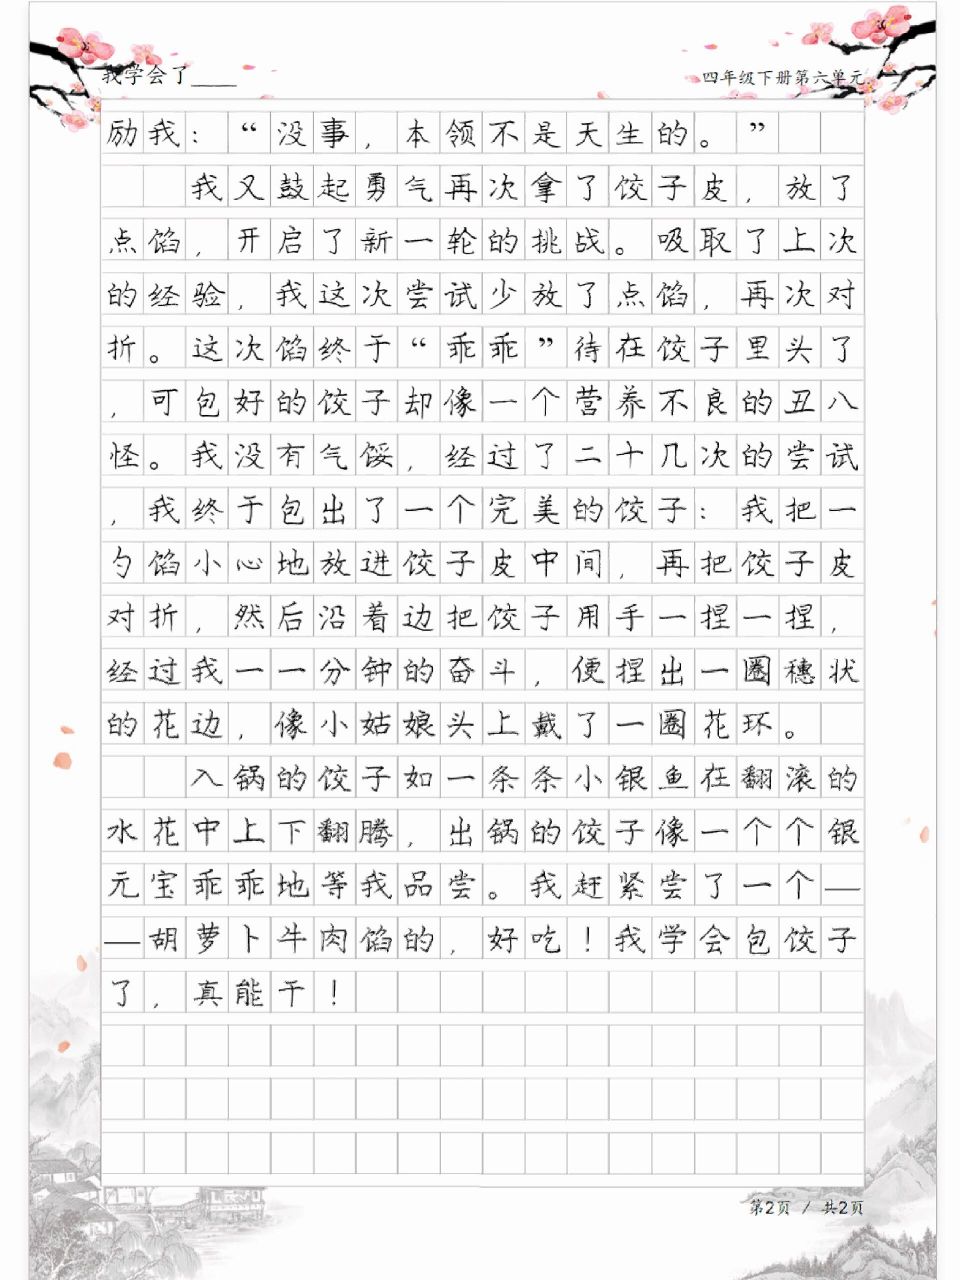 我学会了____
四年级下册第六单元
励我：“没事，本领不是天生的。”
我又鼓起勇气再次拿了饺子皮，放了
点馅，开启了新一轮的挑战。吸取了上次
的经验，我这次尝试少放了点馅，再次对
折。这次馅终于“乖乖”待在饺子里头了
，可包好的饺子却像一个营养不良的丑八
怪。我没有气馁，经过了二十几次的尝试
，我终于包出了一个完美的饺子：我把一
勺馅小心地放进饺子皮中间，再把饺子皮
对折，然后沿着边把饺子用手一捏一捏，
经过我一一分钟的奋斗，便捏出一圈穗状
的花边，像小姑娘头上戴了一圈花环。
入锅的饺子如一条条小银鱼在翻滚的
水花中上下翻腾，出锅的饺子像一个个银
元宝乖乖地等我品尝。我赶紧尝了一个—
—胡萝卜牛肉馅的，好吃！我学会包饺子
了，真能干！
第2页 / 共2页